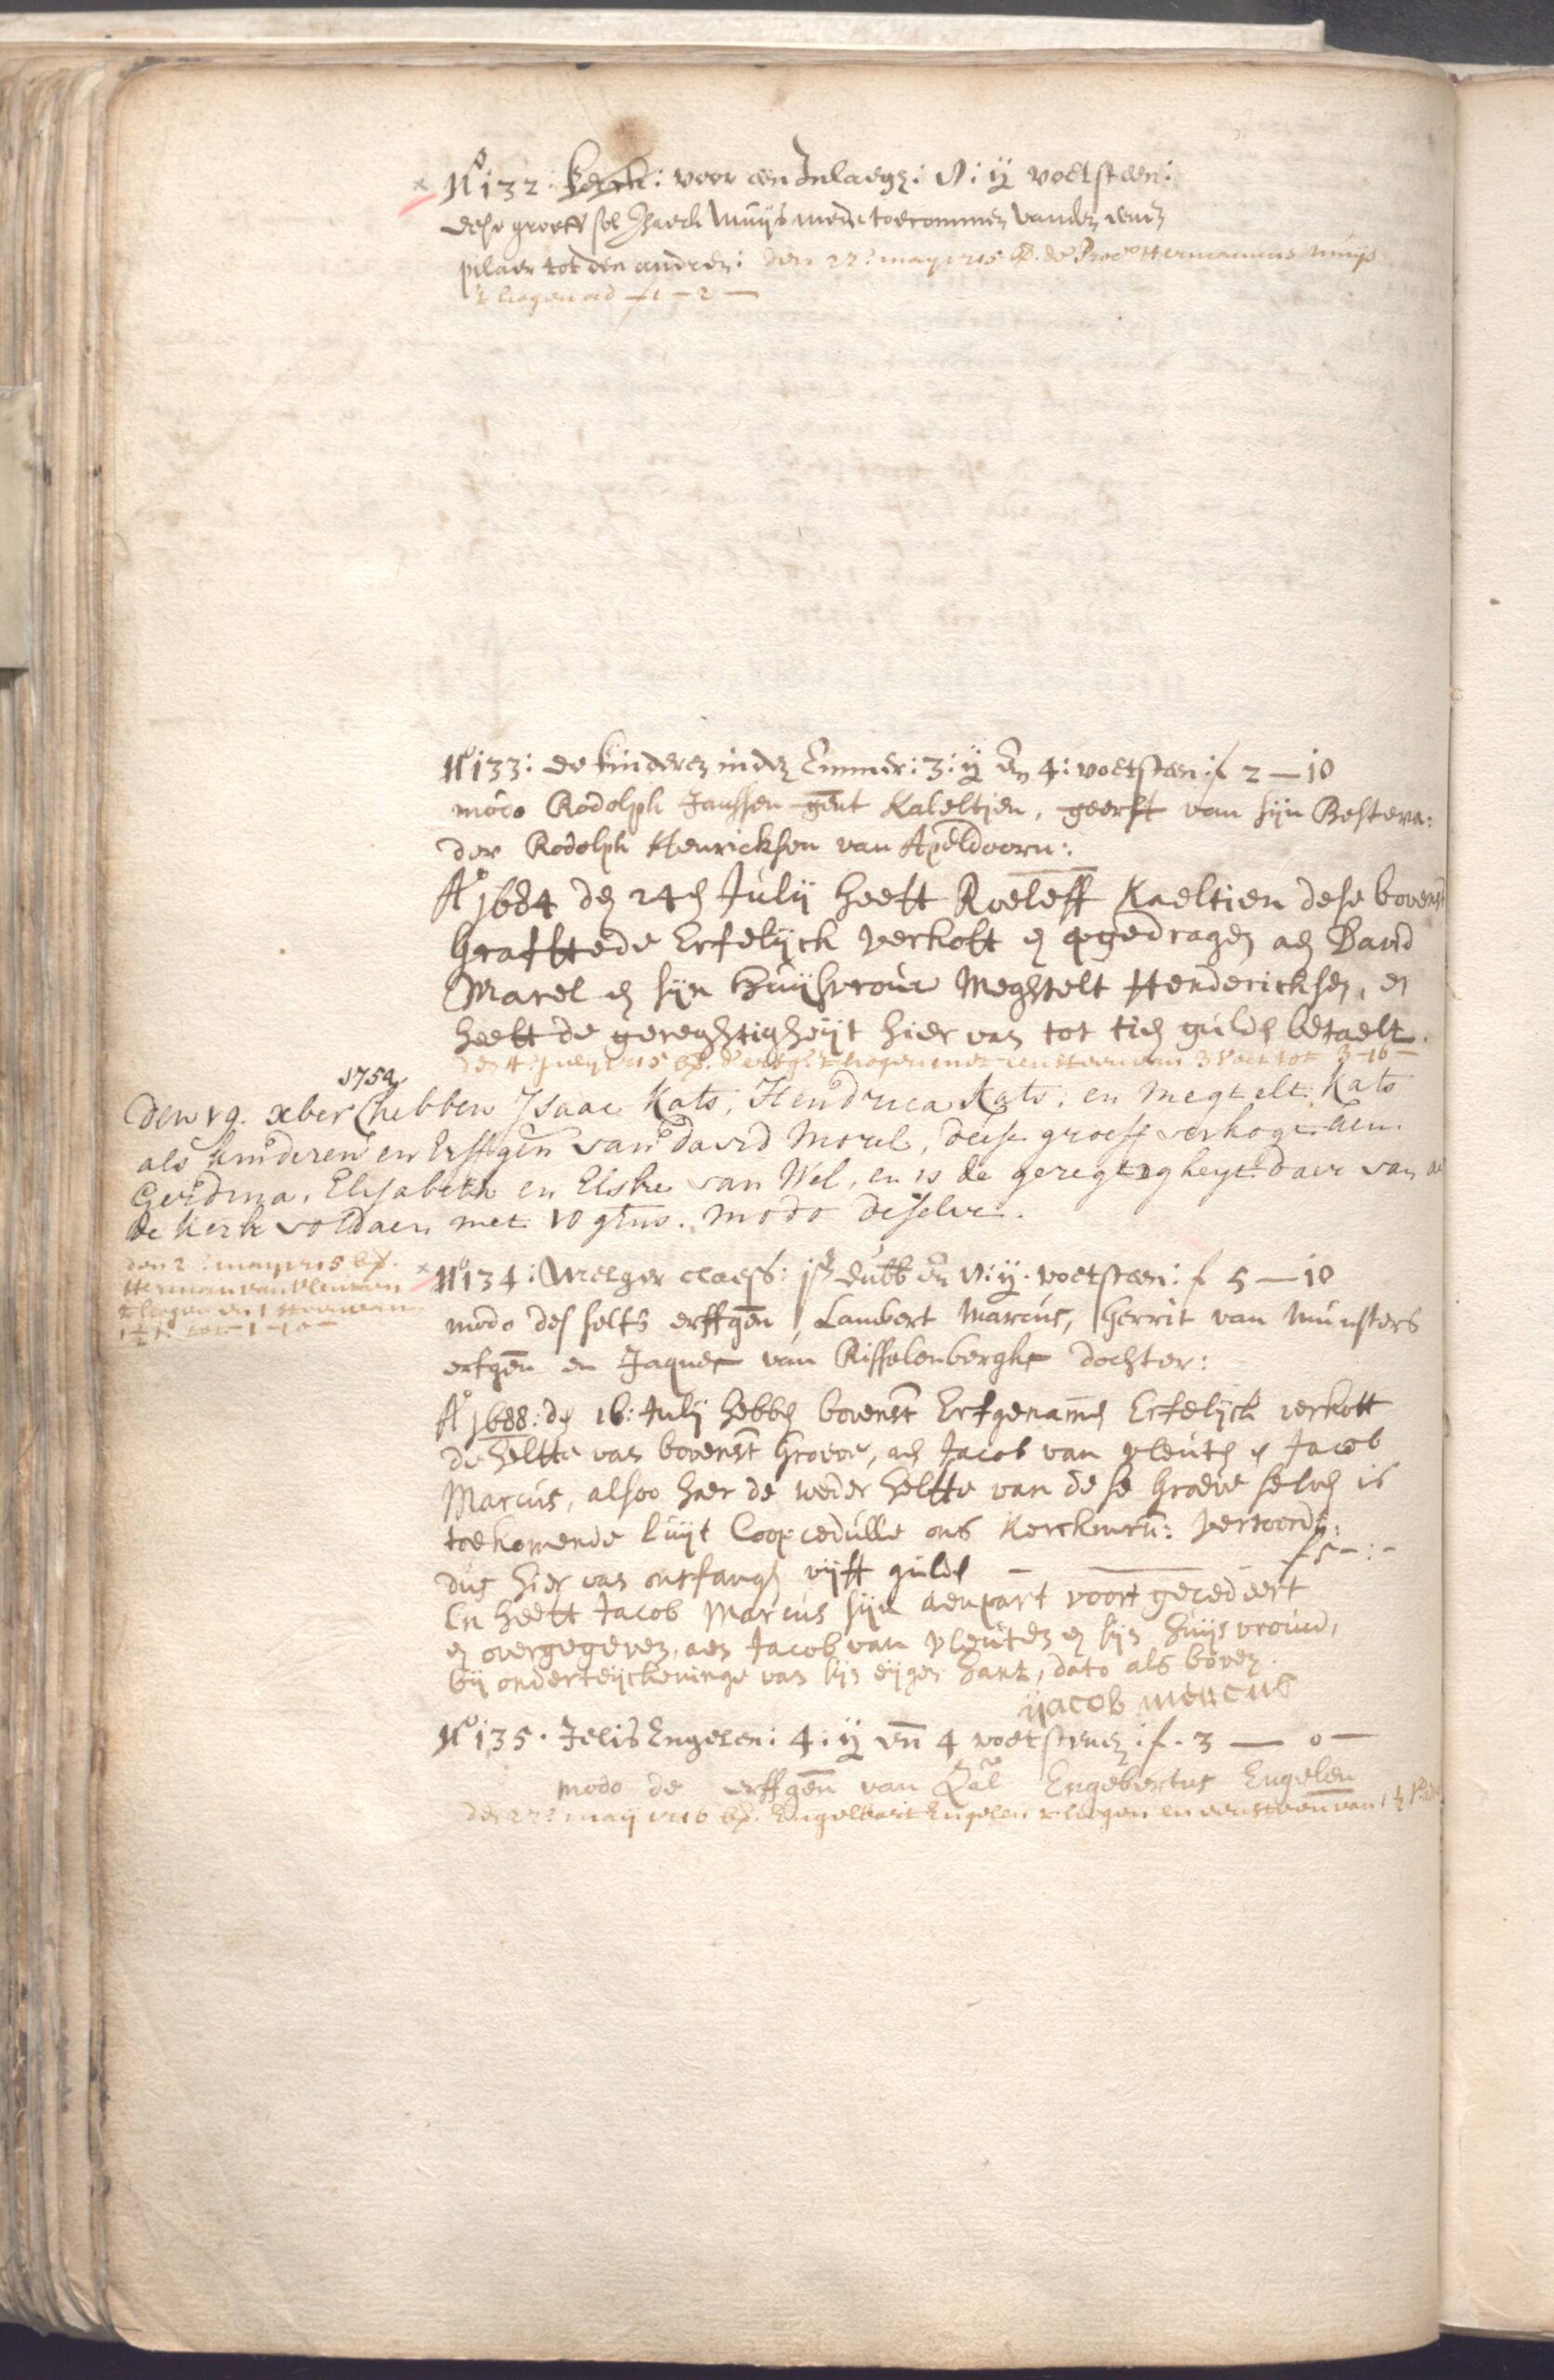 No 132: kerck: voor een Inlaege: V: ij voetsteen:
dese groeff sel Isaeck Muijs mede toecommen van den eenen
pilaer tot den anderen: den 22: may 1715 de Proc. Hermannus Muijs
't hogen ad f 1 - 2 -
No 133: de kinderen inden Emmer: 3: ij en 4: voetsteen: f 2 - 10
modo Rodolph Janssen gent Kaleltjen, geerft van sijn Besteva:
der Rodolph Henricksen van Apeldoorn:
Ao 1684 den 24en Julij heeft Roeleff Kaeltien dese bovenst
Grafstede Erfelijck verkoft en opgedragen aen David
Marel en sijn huijsvrouw Meghtelt Hendericksen, en
heeft de gereghtigheijt hier van tot tien gulden betaelt.
den 4: July 1715 d'erfg: 't hogen met een steen van 3 voet tot 3-16-
1754
Den 19. xber hebben Isaac Kats, Hendrica Kats, en Megtelt Kats
als kinderen en Erffgen van David Morel, dese groeff verkogt aen
Gerdina, Elisabeth en Elske van Wel, en is de geregtigheyt daer van ae
de Kerk voldaen met 10 gls. modo deselve.
den 2: may 1715
Herman van Vleuten
't hogen en 1 steen van
1½ v: tot 1-10-
No 134: Melger claess: dubb en V: ij. voetsteen: f 5 - 10
modo des selfs erffgen, Lambert Marcus, Gerrit van Munsters
erfgen en Jaques van Riffelenberghs dochter:
Ao 1688: den 16: Julij hebben bovenst Erfgenamen Erfelijck verkoft
de helfte van bovenst Groeve, aen Jacob van Vleuten en Jacob
Marcus, alsoo haer de weder helfte van dese Groeve selven is
toekomende luijt Coopcedulle ons Kerckmrn: vertoondt:
dus hier van ontfangen vijff gulden - f 5-:-
En heeft Jacob Marcus sijn aenpart voort gecedeert
en overgegeven, aen Jacob van Vleuten en sijn huijsvrouw,
bij onderteijckeninge van sijn eijgen hant, dato als boven.
ijacob mercus
No 135. Jelis Engelen: 4: ij en 4 voetsteen: f. 3 - 0 -
modo de erffgen van Engebertus Engelen
den 22: maij 1716 Engelbart Engelen 't hogen en een steen van 1½ v: